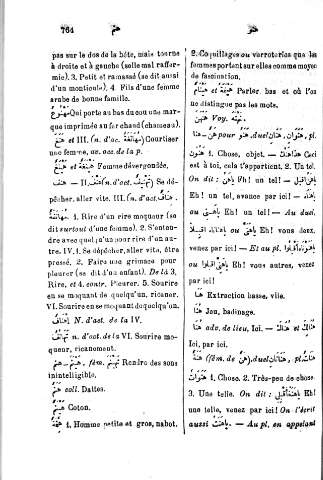 764
هنم
هنو
pas sur le dos de la bête, mais tourne
à droite et à gauche (selle mal raffer-
mie). 3. Petit et ramassé (se dit aussi
d'un monticule). 4. Fils d'une femme
arabe de bonne famille.
Qui porte au bas du cou une mar-
que imprimée au fer chaud (chameau).
et III. (n. d'act. مُهَانَغَة) Courtiser
une femme, ac. acc de la p.
Femme dévergondée.
هنف — II. (n. d'act. تَهْنِيف) Se dé-
pêcher, aller vite. III. (n. d'act.
1. Rire d'un rire moqueur (se
dit surtout d'une femme). 2. S'enten-
dre avec quelqu'un pour rire d'un au-
tre. IV. 1. Se dépêcher, aller vite, être
pressé. 2. Faire une grimace pour
pleurer (se dit d'un enfant). De là 3.
Rire, et 4. contr. Pleurer. 5. Sourire
en se moquant de quelqu'un, ricaner.
VI. Sourire en se moquant de quelqu'un.
إهناف N. d'act. de la IV.
تهانف n. d'act. de la VI. Sourire mo-
queur, ricanement.
هنم — fém. Rendre des sons
inintelligible.
هنم coll. Dattes.
هنم Coton.
1. Homme petit et gros, nabot.
2. Coquillages ou verroteries que les
femmes portent sur elles comme moyen
de fascination.
et Parler bas et où l'on
ne distingue pas les mots.
Voy.
هن — هنا pour هنو, duel هنوان, pl.
هنون 1. Chose, objet. — هذا هنك Ceci
est à toi, cela t'appartient. 2. Un tel.
On dit: يا هن Eh! un tel! — يا هن أقبل
Eh! un tel, avance par ici! — يا هناه
ou Eh! un tel! — Au duel,
Eh! vous deux,
venez par ici! — Et au pl.
ou Eh! vous autres, venez
par ici!
هنا Extraction basse, vile.
هنا Jeu, badinage.
هنا adv. de lieu, Ici. — هناك et هنالك
Ici, par ici.
هنة (fém. de هن), duel هنتان, pl.
هنوات 1. Chose. 2. Très-peu de chose.
3. Une telle. On dit: يا هنة أقبلي Eh!
une telle, venez par ici! On l'écrit
aussi يا هنت — Au pl., en appelant